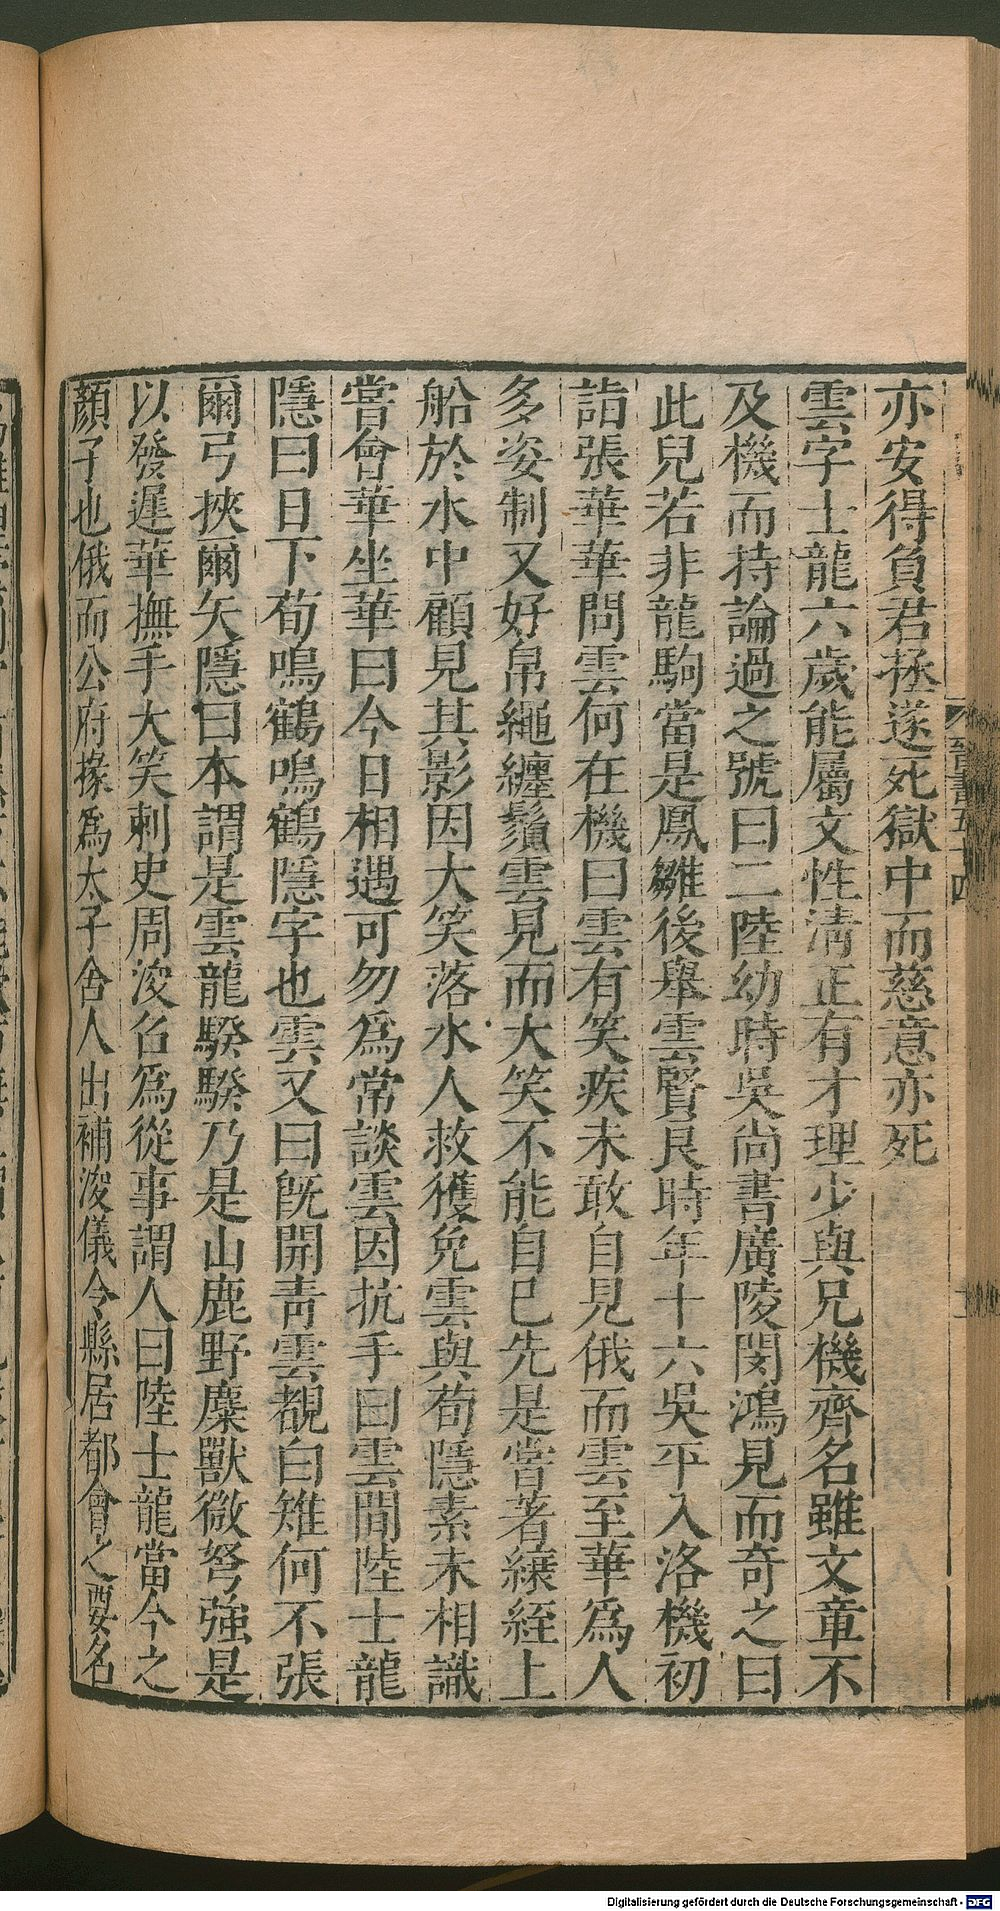 亦安得負君拯遂死獄中而慈意亦死
雲字士龍六歲能屬文性清正有才理少與兄機齊名雖文章不
及機而持論過之號曰二陸幼時吳尚書廣陵閔鴻見而奇之曰
此兒若非龍駒當是鳳雛後舉雲賢良時年十六吳平入洛機初
詣張華華問雲何在機曰雲有笑疾未敢自見俄而雲至華爲人
多姿制又好帛繩纏鬚雲見而大笑不能自已先是嘗著縗絰上
船於水中顧見其影因大笑落水人救獲免雲與荀隱素未相識
嘗會華坐華曰今日相遇可勿爲常談雲因抗手曰雲間陸士龍
隱曰日下荀鳴鶴鳴鶴隱字也雲又曰旣開靑雲覩白雉何不張
爾弓挾爾矢隱曰本謂是雲龍騤騤乃是山鹿野麋獸微弩強是
以發遲華撫手大笑刺史周浚召爲從事謂人曰陸士龍當今之
顏子也俄而公府掾爲太子舍人出補浚儀令縣居都會之要名
晉書五十四
Digitalisierung gefördert durch die Deutsche Forschungsgemeinschaft - DFG